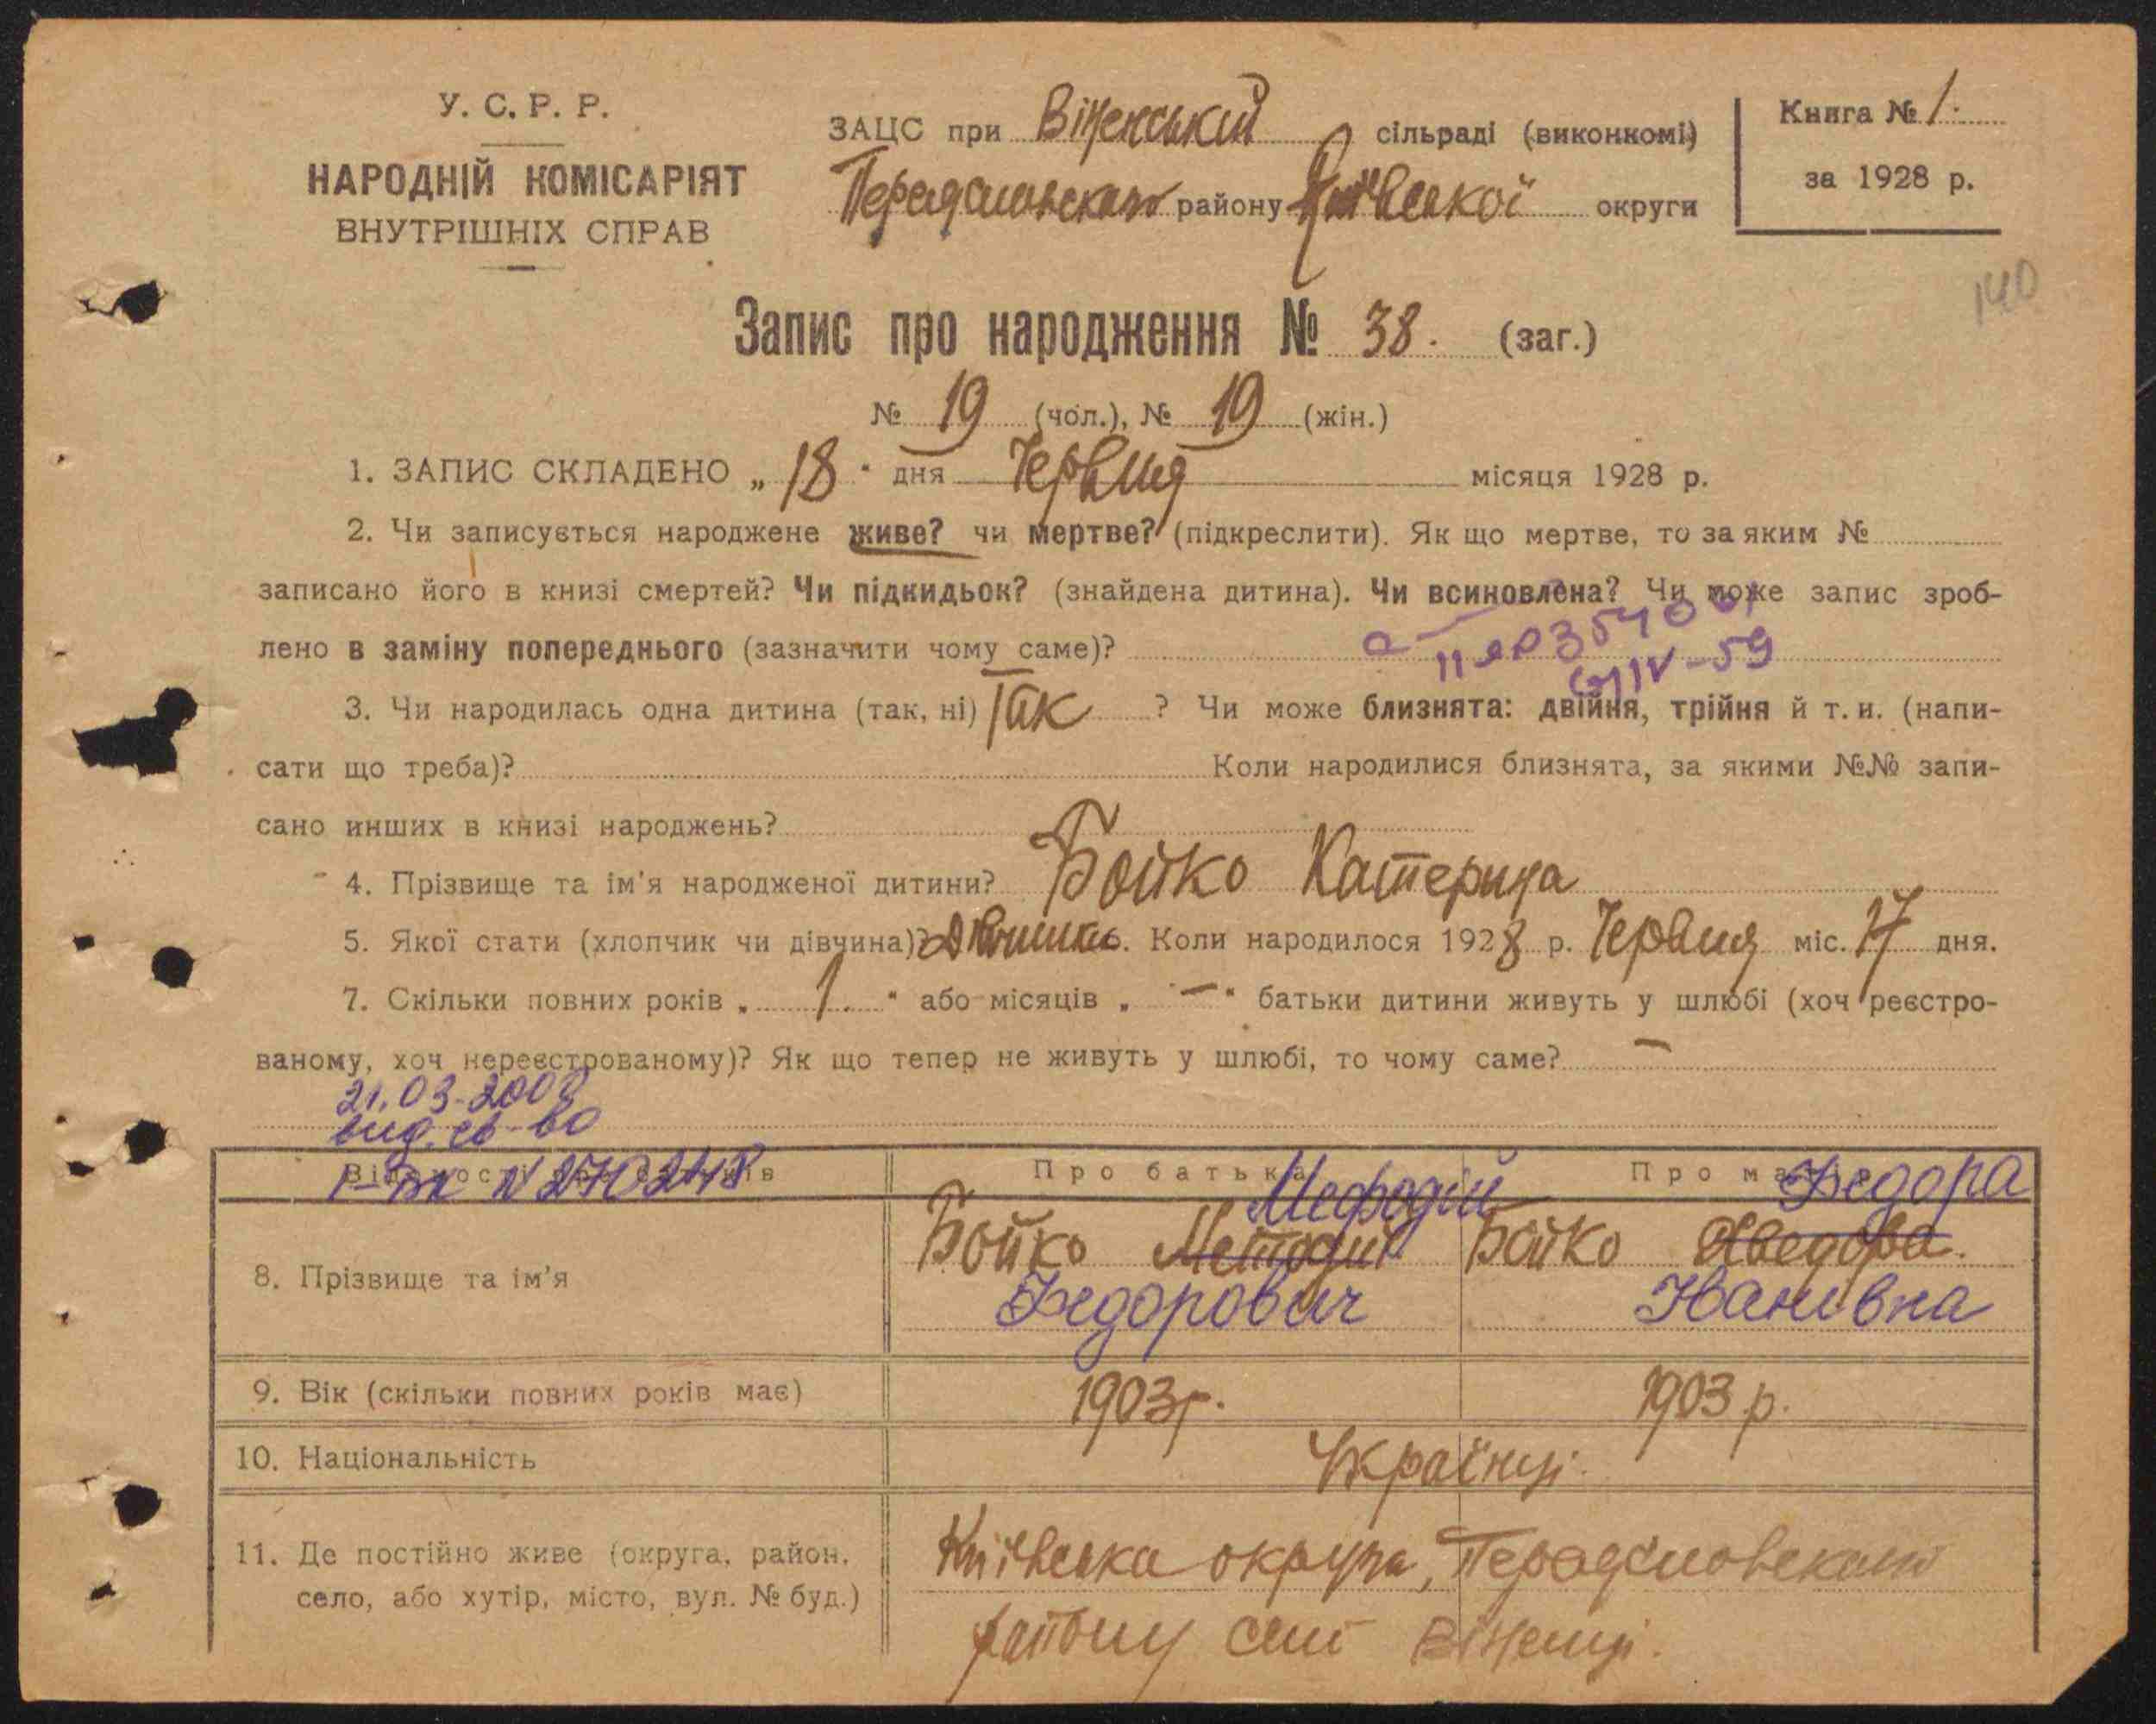 У. С. Р. Р.
НАРОДНІЙ КОМІСАРІЯТ
ВНУТРІШНІХ СПРАВ
ЗАЦС при Віненський сільраді (виконкомі)
району Київської округи
Книга № 1.
за 1928 р.
140
Запис про народження № 38. (заг.)
№ 19 (чол.), № 19 (жін.)
1. ЗАПИС СКЛАДЕНО „ 18 " дня Червця місяця 1928 р.
2. Чи записується народжене живе? чи мертве? (підкреслити). Як що мертве, то за яким №
записано його в книзі смертей? Чи підкидьок? (знайдена дитина). Чи всиновлена? Чи може запис зроб-
лено в заміну попереднього (зазначити чому саме)?
IV-59
3. Чи народилась одна дитина (так, ні) Так ? Чи може близнята: двійня, трійня й т. и. (напи-
сати що треба)? Коли народилися близнята, за якими №№ запи-
сано инших в книзі народжень?
4. Прізвище та ім'я народженої дитини? Бойко Катерина
5. Якої стати (хлопчик чи дівчина)? 6. Коли народилося 1928 р. Червця міс. 17 дня.
7. Скільки повних років „ 1. " або місяців „ — " батьки дитини живуть у шлюбі (хоч реєстро-
ваному, хоч нереєстрованому)? Як що тепер не живуть у шлюбі, то чому саме? —
21.03.2008
вид. св-во
I-БК N 270248
Про батька
8. Прізвище та ім'я
Бойко Методий Мефодій
Федорович
Бойко Хведора. Федора
Іванівна
9. Вік (скільки повних років має) 1903 р. 1903 р.
10. Національність Українці.
11. Де постійно живе (округа, район,
село, або хутір, місто, вул. № буд.)
Київська округа,
району село Віненці.